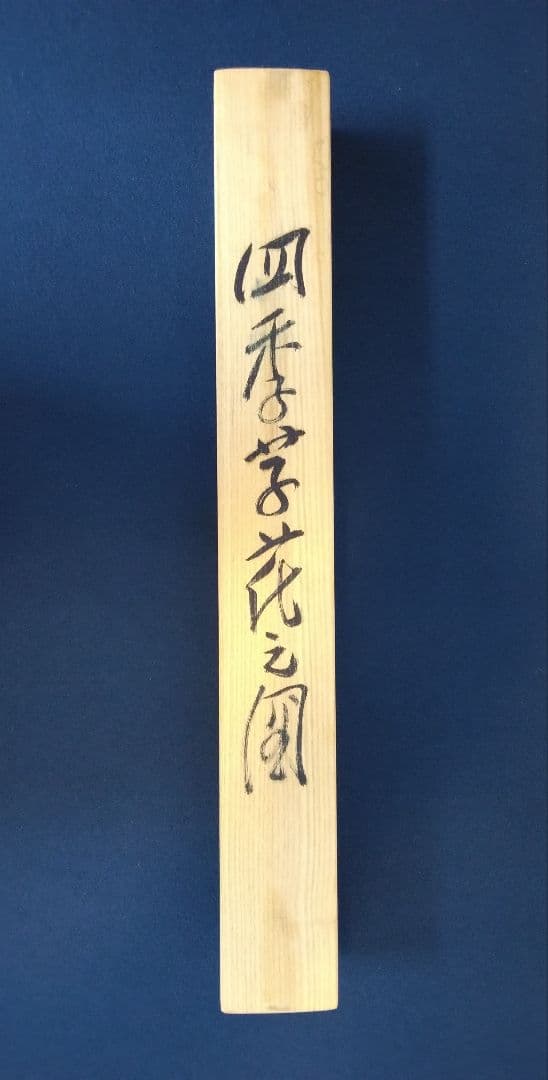 四季草花之圖